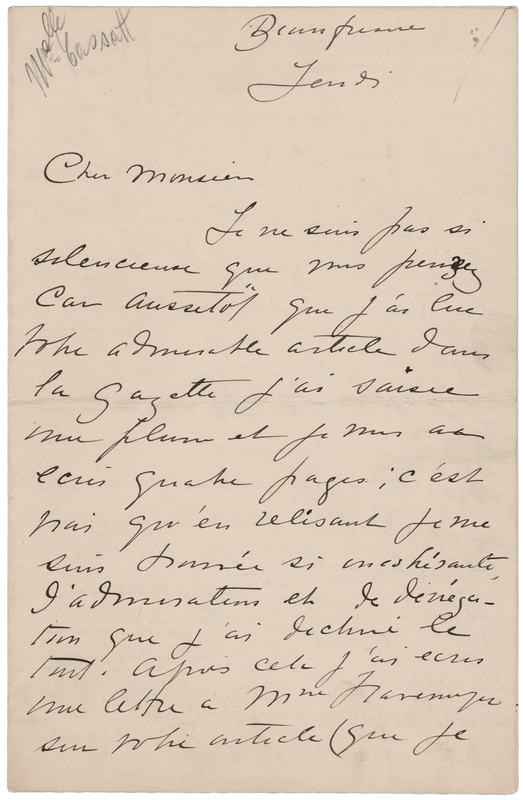 Mlle
Cassatt
Beaufresne
Jeudi
Cher Monsieur
Je ne suis pas si
silencieuse que vous pensez
Car aussitôt que j'ai lue
votre admirable article dans
la Gazette j'ai saisie
une plume et je vous
ecris quatre pages; c'est
vrai qu'en relisant je me
suis trouvée si incohérante,
d'admiration et de dénéga-
tion que j'ai dechiré le
tout. Après cela j'ai ecris
une lettre a Mme Havemeyer
sur votre article (que je